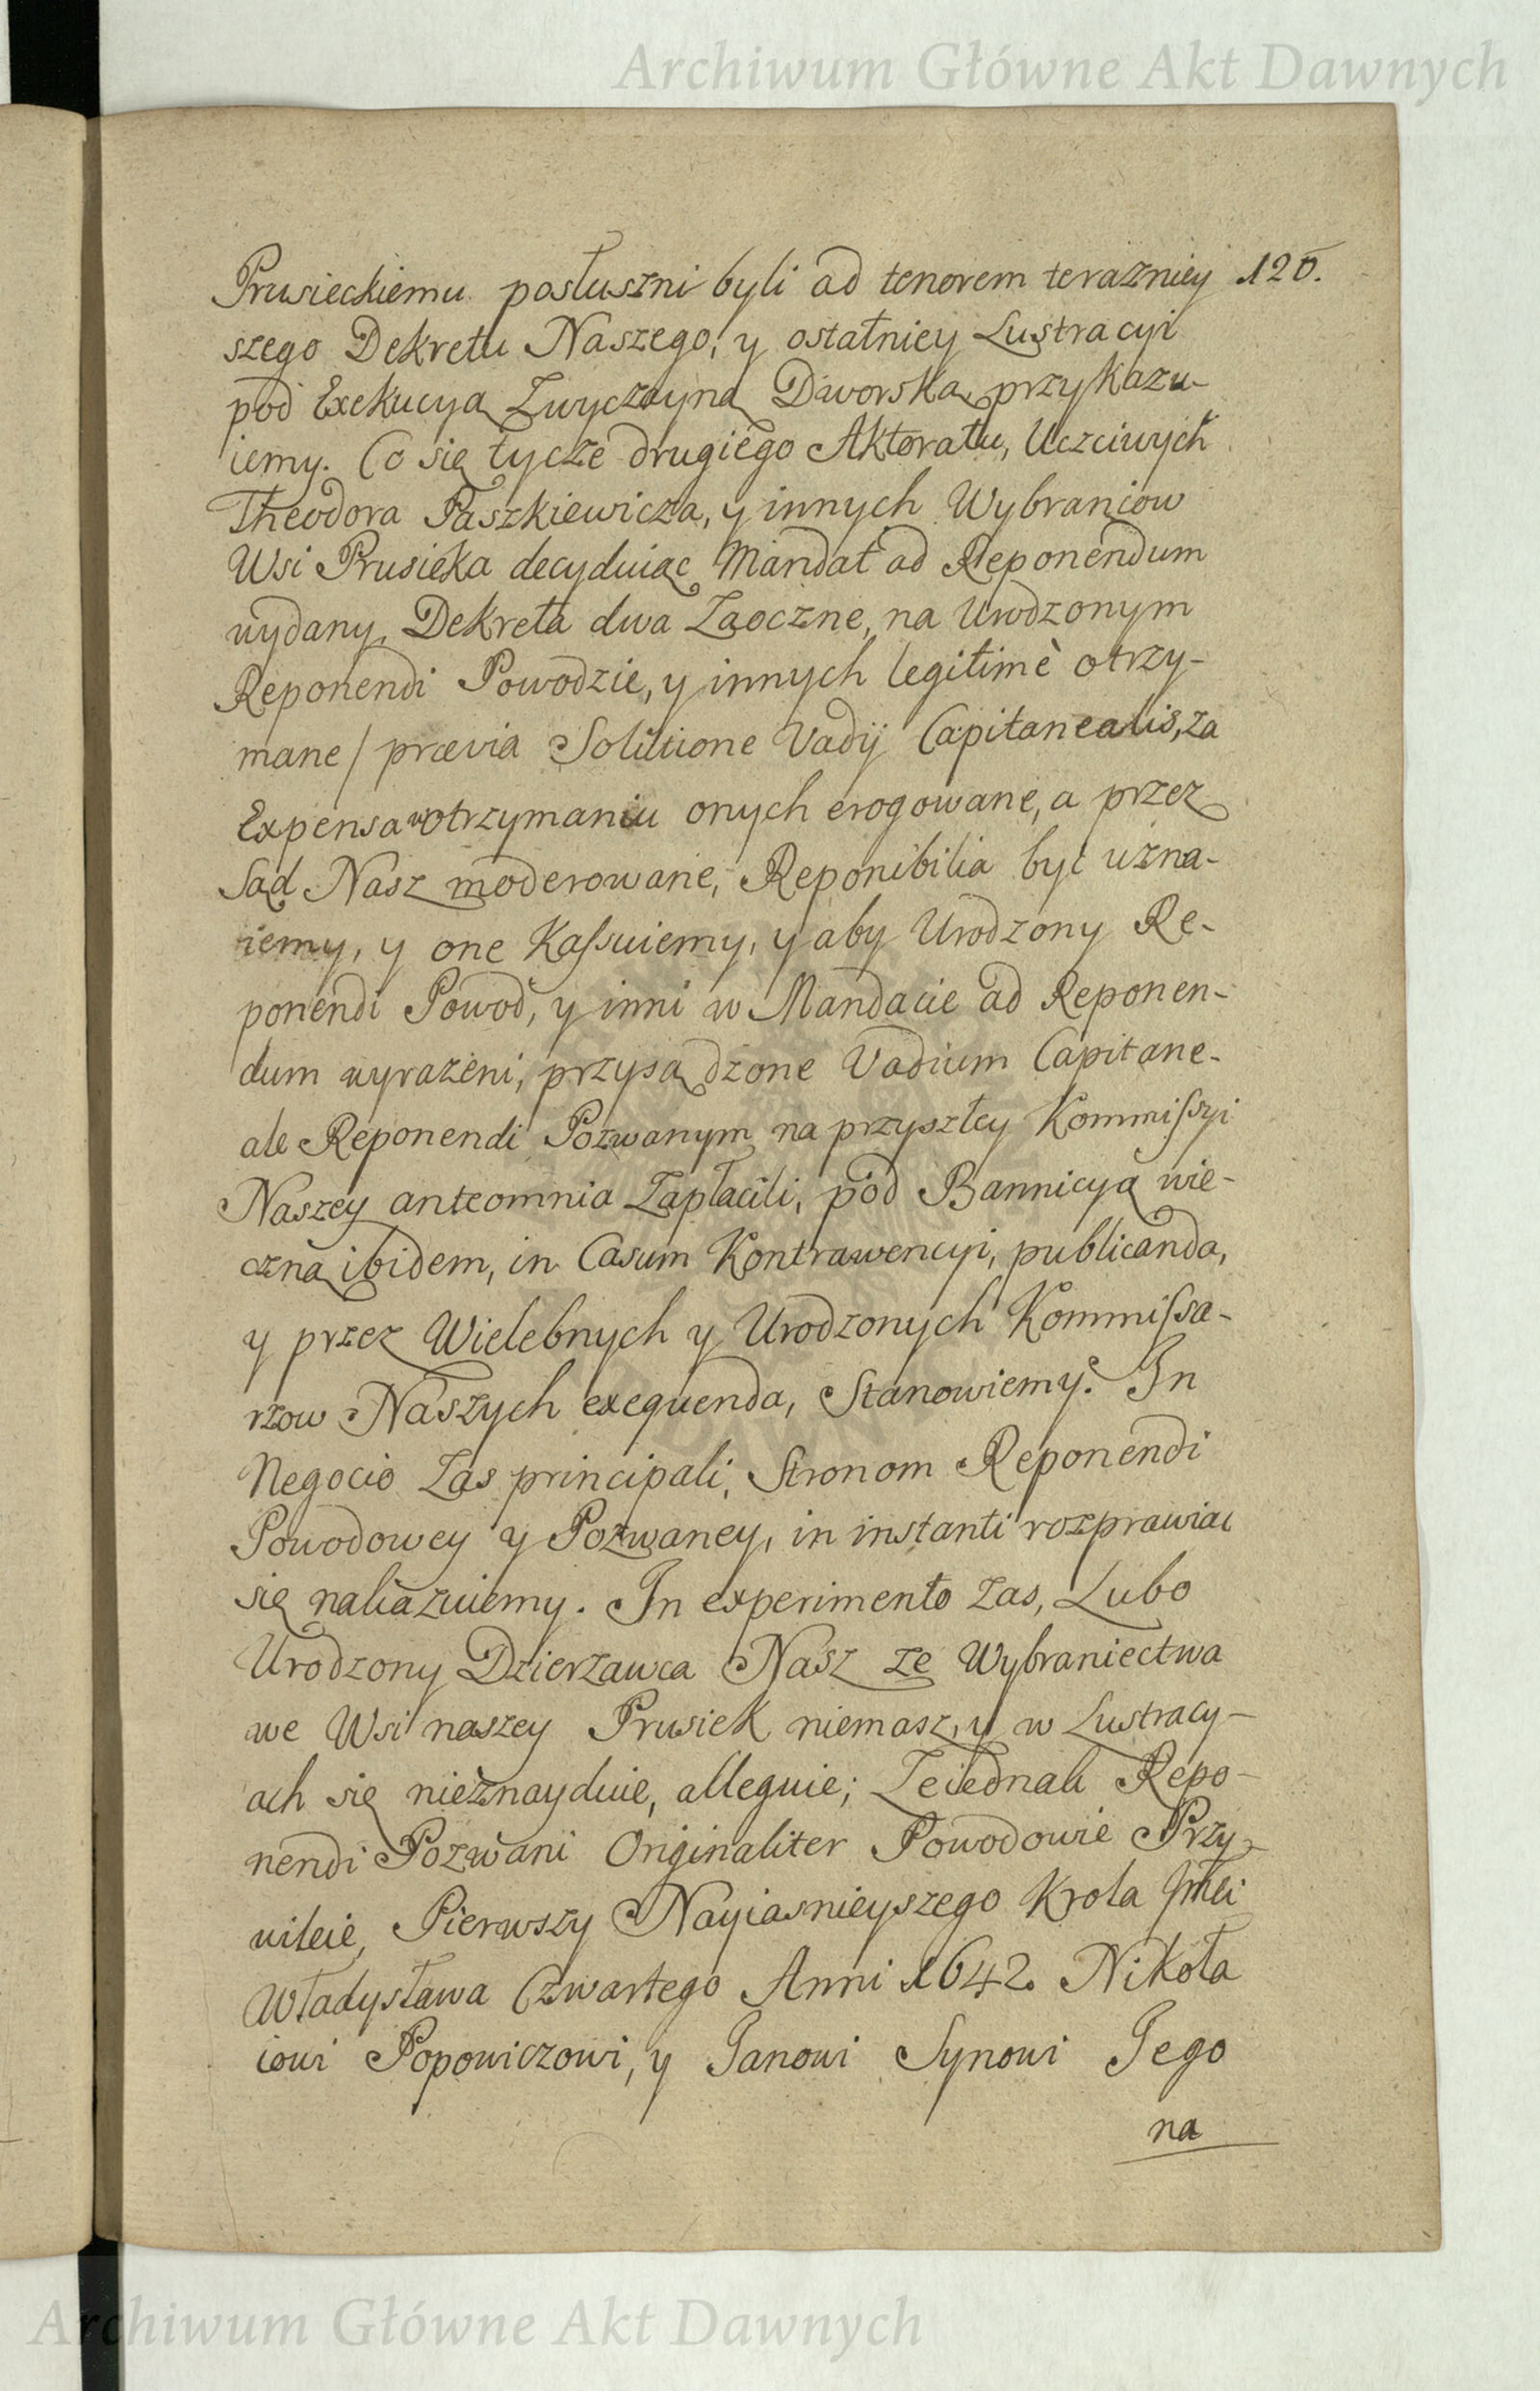 Archiwum Główne Akt Dawnych
Prusieckiemu posłuszni byli ad tenorem terazniey 120.
szego Dekretu Naszego, y ostatniey Lustracyi
pod Exekucyą Zwyczayną Dworską przykazu-
iemy. Co się tycze drugiego Aktoratu, Uczciwych
Theodora Paszkiewicza, y innych Wybrancow
Wsi Prusieka decyduiąc Mandat ad Reponendum
wydany, Dekreta dwa Zaoczne, na Urodzonym
Reponendi Powodzie, y innych legitimè otrzy-
mane / prævia Solutione Vadij Capitanealis, za
Expensa w otrzymaniu onych erogowane, a przez
Sąd Nasz moderowane, Reponibilia być uzna-
iemy, y one Kassuiemy, y aby Urodzony Re-
ponendi Powod, y inni w Mandacie ad Reponen-
dum wyrazeni, przysądzone Vadium Capitane-
ale Reponendi Pozwanym na przyszłey Kommissyi
Naszey anteomnia Zapłacili, pod Bannicyą wie-
czną ibidem, in Casum Kontrawencyi, publicanda,
y przez Wielebnych y Urodzonych Kommissa-
rzow Naszych exequenda, Stanowiemy. In
Negocio Zas principali, Stronom Reponendi
Powodowey y Pozwaney, in instanti rozprawiac
się nakazuiemy. In experimento Zas, Lubo
Urodzony Dzierzawca Nasz ze Wybraniectwa
we Wsi naszey Prusiek niemasz, y w Lustracy-
ach się nieznayduie, alleguie; Zeiednak Repo-
nendi Pozwani Originaliter Powodowie Przy-
wileie, Pierwszy Nayiasnieyszego Krola Jmci
Władysława Czwartego Anni 1642. Nikoła
iowi Popowiczowi, y Janowi Synowi Jego
na
Archiwum Główne Akt Dawnych